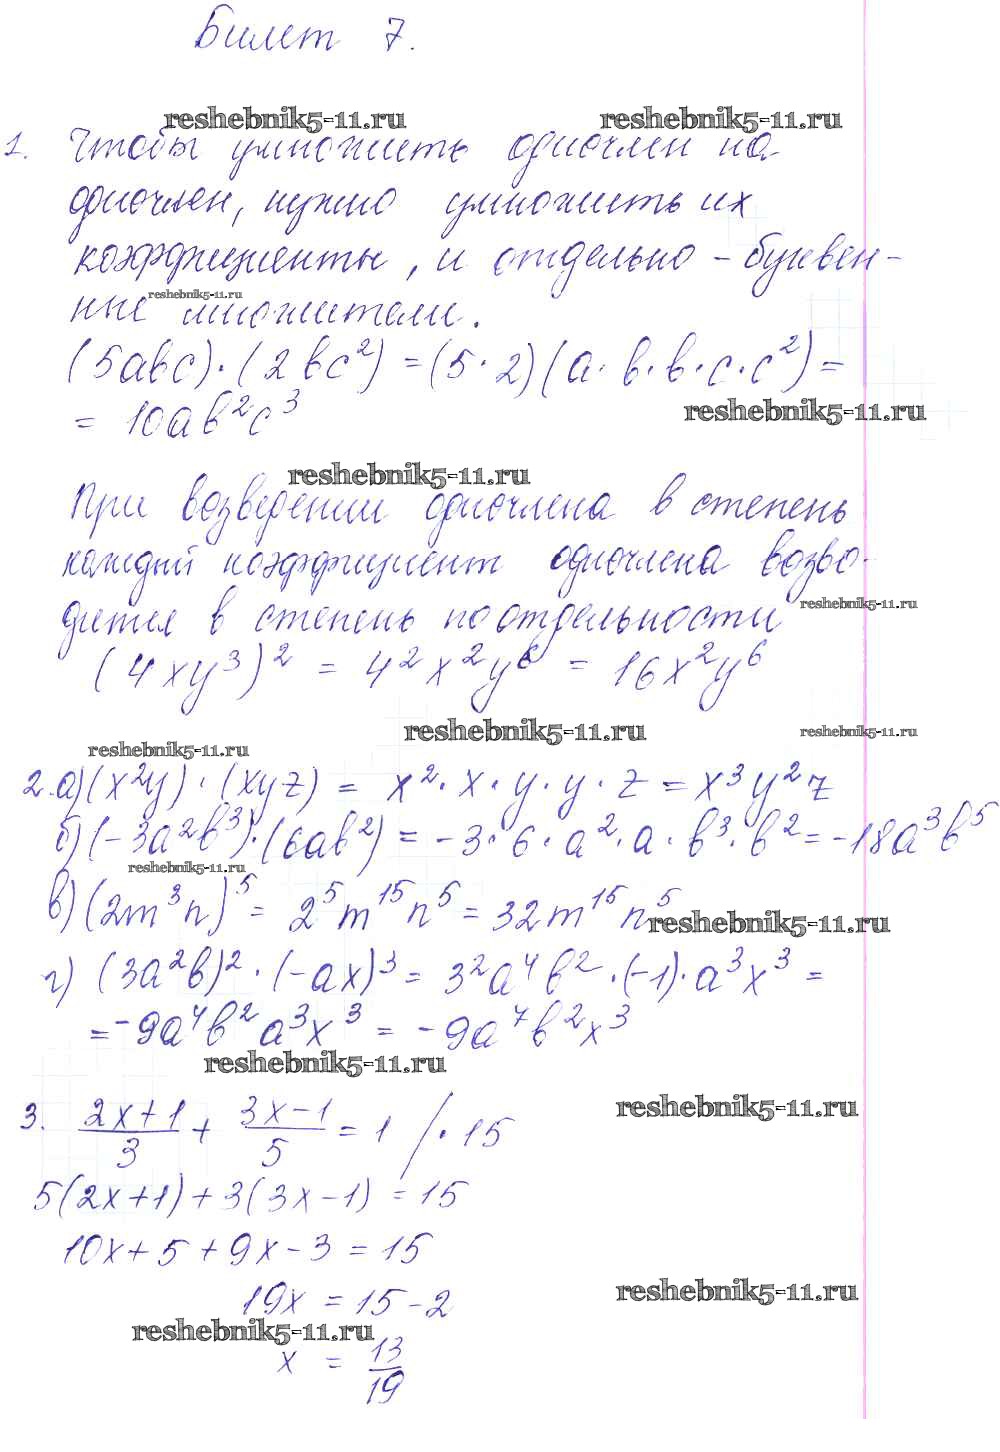 Билет 7.
reshebnik5-11.ru reshebnik5-11.ru
1. Чтобы умножить одночлен на
одночлен, нужно умножить их
коэффициенты, и отдельно - буквен-
reshebnik5-11.ru
ные множители.
(5abc)·(2bc²) = (5·2)(a·b·b·c·c²) =
= 10ab²c³
reshebnik5-11.ru
reshebnik5-11.ru
При возведении одночлена в степень
каждый коэффициент одночлена возво-
reshebnik5-11.ru
дится в степень по отдельности
(4xy³)² = 4²x²y⁶ = 16x²y⁶
reshebnik5-11.ru reshebnik5-11.ru
reshebnik5-11.ru
2. а) (x²y)·(xyz) = x²·x·y·y·z = x³y²z
б) (-3a²b³)·(6ab²) = -3·6·a²·a·b³·b² = -18a³b⁵
reshebnik5-11.ru
в) (2m³n)⁵ = 2⁵m¹⁵n⁵ = 32m¹⁵n⁵
reshebnik5-11.ru
г) (3a²b)²·(-ax)³ = 3²a⁴b²·(-1)·a³x³ =
= -9a⁴b²a³x³ = -9a⁷b²x³
reshebnik5-11.ru
reshebnik5-11.ru
3. (2x+1)/3 + (3x-1)/5 = 1 /·15
5(2x+1)+3(3x-1) = 15
10x+5+9x-3 = 15
reshebnik5-11.ru
19x = 15-2
reshebnik5-11.ru
x = 13/19